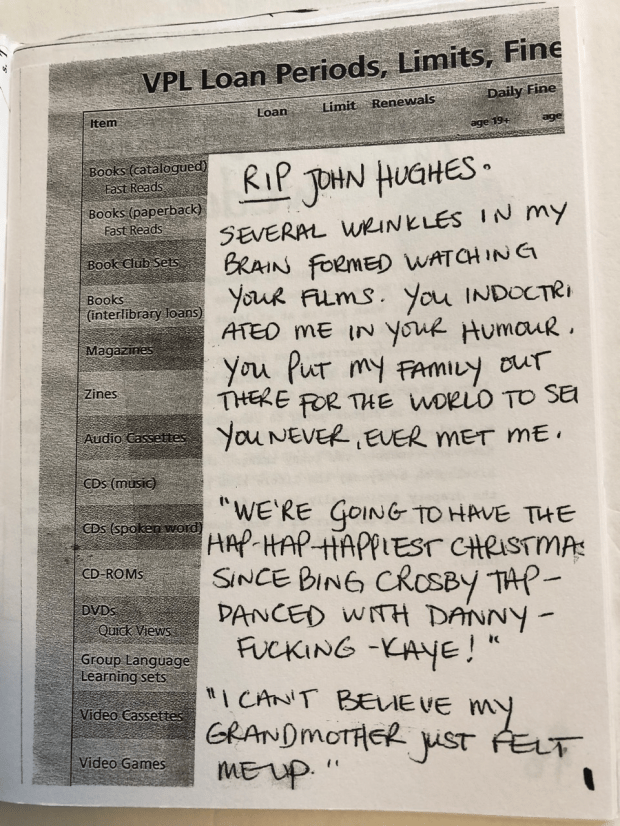 VPL Loan Periods, Limits, Fine
Item Loan Limit Renewals Daily Fine
age 19+ age
Books (catalogued)
Fast Reads
Books (paperback)
Fast Reads
Book Club Sets
Books
(interlibrary loans)
Magazines
Zines
Audio Cassettes
CDs (music)
CDs (spoken word)
CD-ROMs
DVDs
Quick Views
Group Language
Learning sets
Video Cassettes
Video Games
RIP JOHN HUGHES.
SEVERAL WRINKLES IN MY
BRAIN FORMED WATCHING
YOUR FILMS. YOU INDOCTRI
ATED ME IN YOUR HUMOUR.
YOU PUT MY FAMILY OUT
THERE FOR THE WORLD TO SEE
YOU NEVER, EVER MET ME.
"WE'RE GOING TO HAVE THE
HAP-HAP-HAPPIEST CHRISTMAS
SINCE BING CROSBY TAP-
DANCED WITH DANNY-
FUCKING-KAYE!"
"I CAN'T BELIEVE MY
GRANDMOTHER JUST FELT
ME UP."